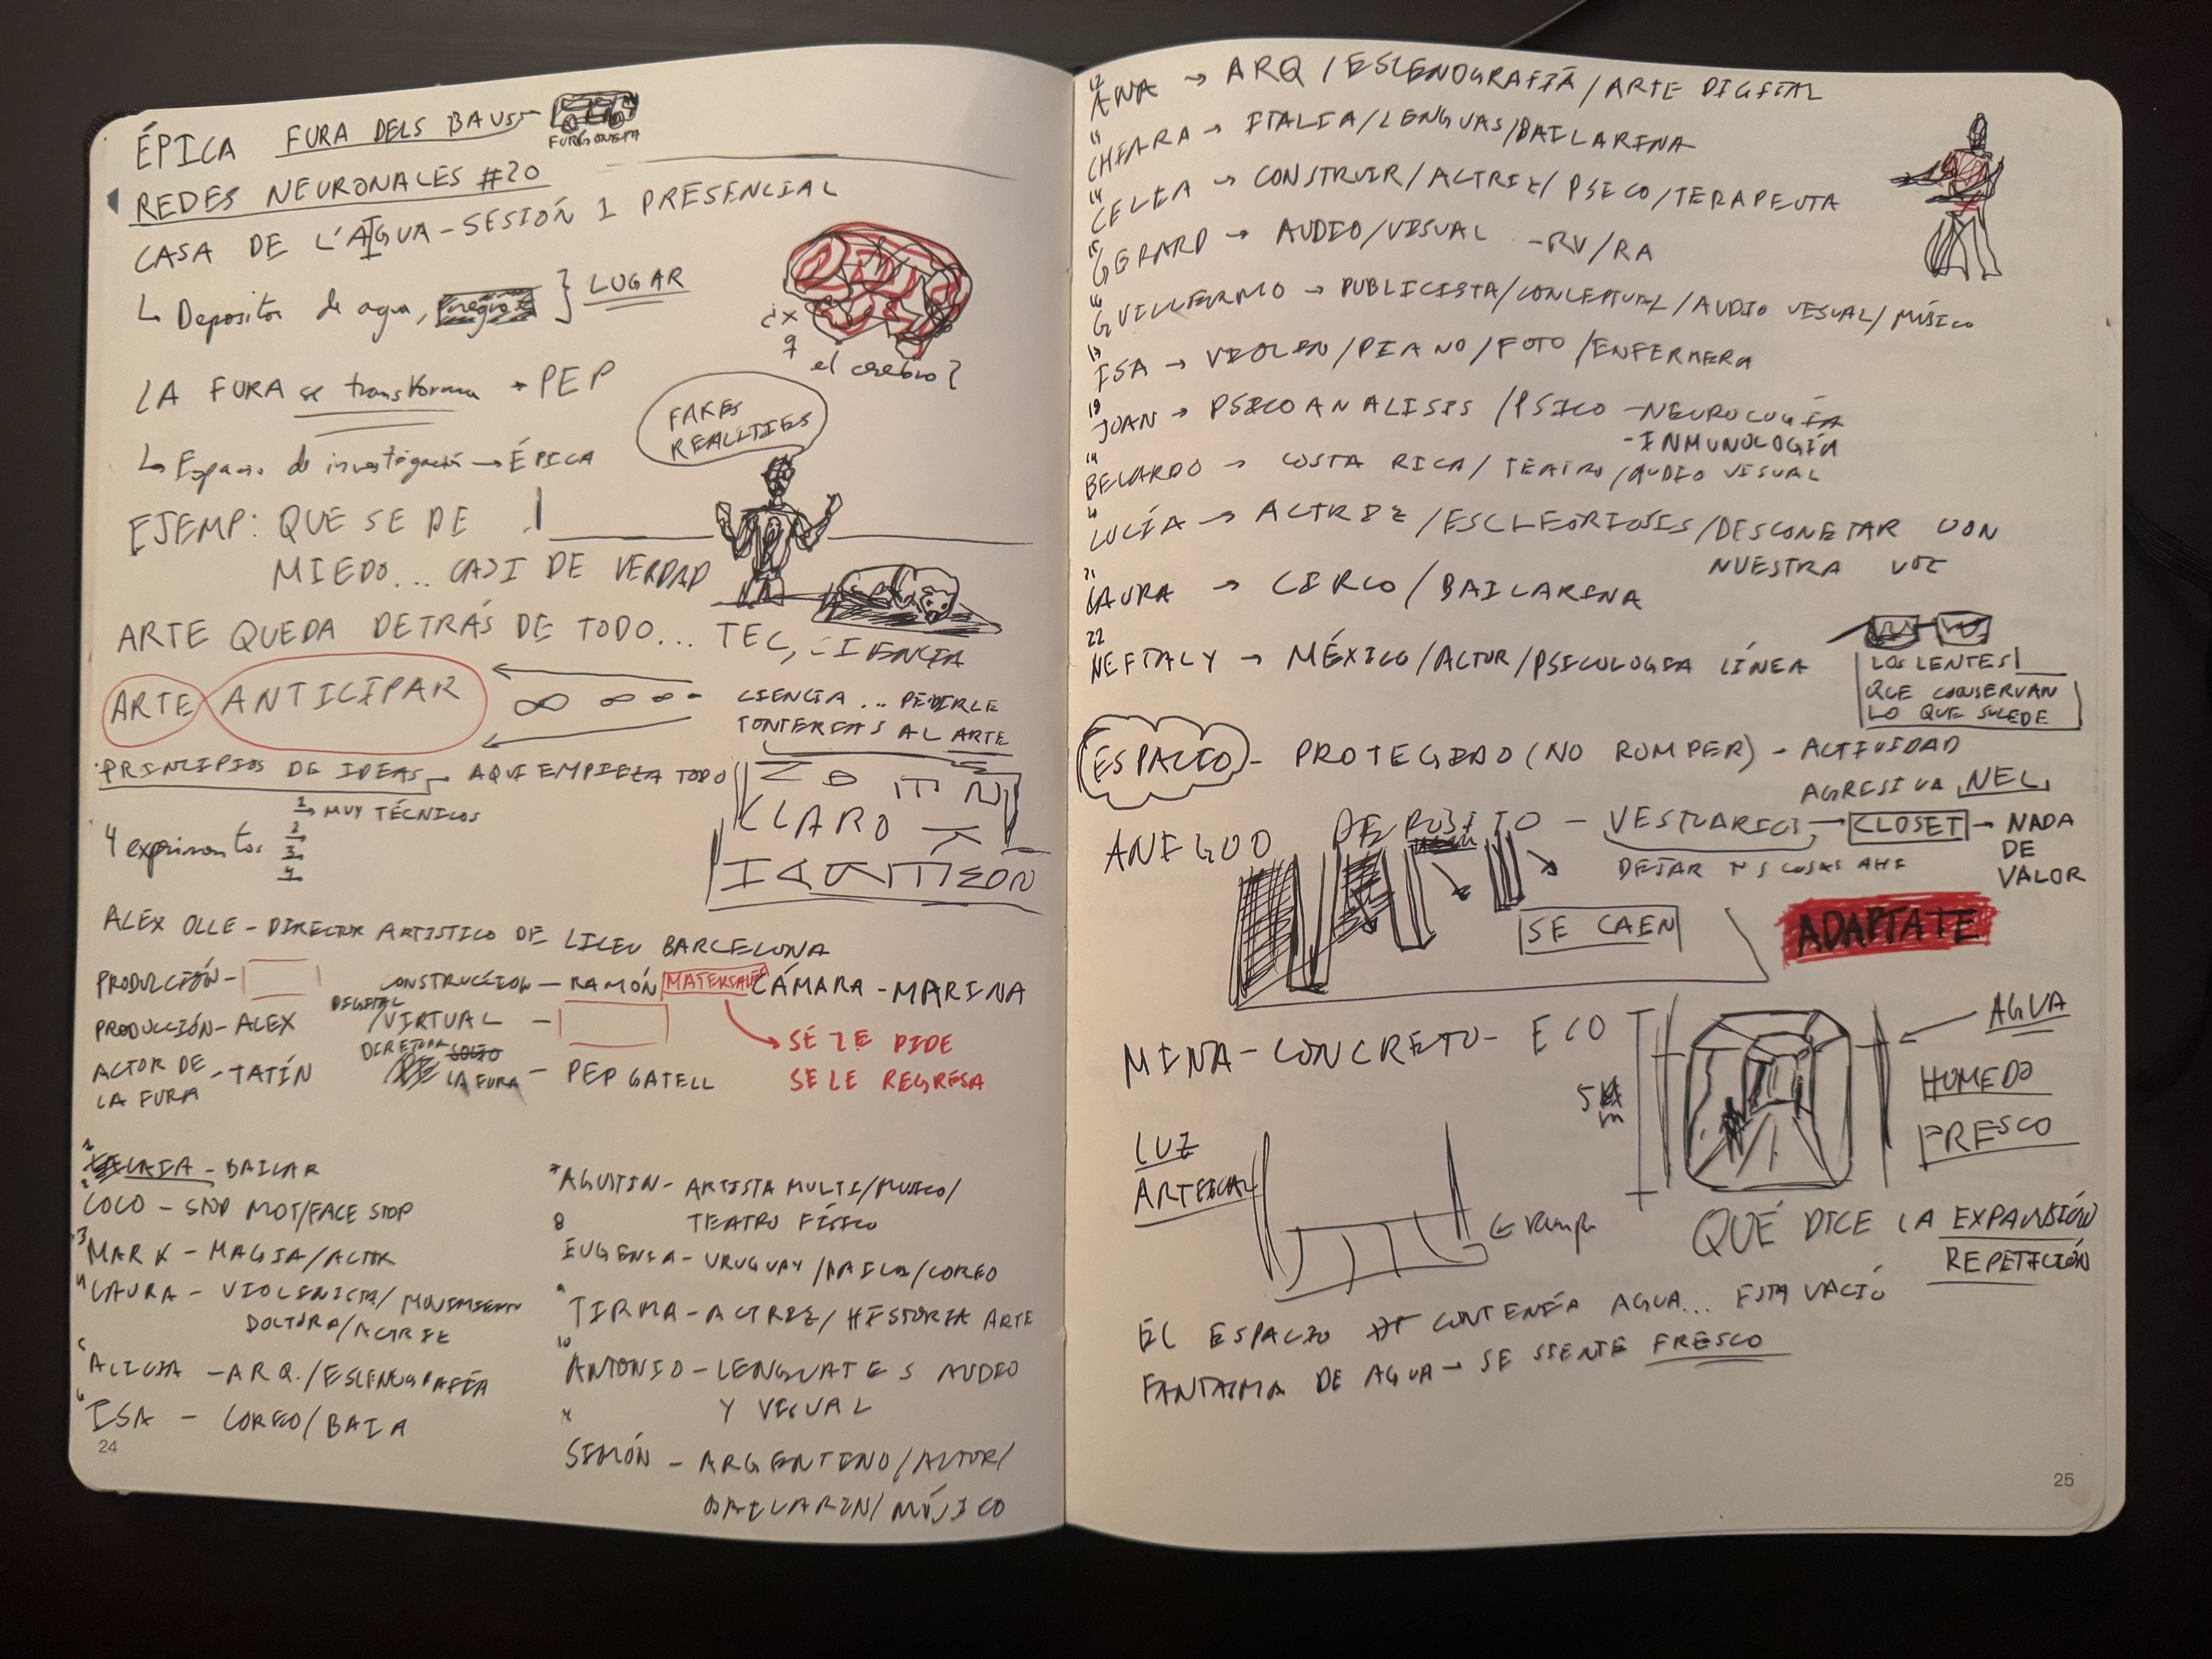 ÉPICA FURA DELS BAUS
FURGONETA
REDES NEURONALES #20
CASA DE L'AIGUA - SESIÓN 1 PRESENCIAL
↳ Depositos de agua, negros } LUGAR
¿x q el cerebro?
LA FURA se transforma • PEP
↳ Espacio de investigación → ÉPICA
FAKES
REALITIES
EJEMP: QUE SE DE
MIEDO... CASI DE VERDAD
ARTE QUEDA DETRÁS DE TODO... TEC, CIENCIA
ARTE ANTICIPAR
CIENCIA... PEDIRLE
TONTERIAS AL ARTE
PRINCIPIOS DE IDEAS AQUI EMPIEZA TODO
1 → MUY TÉCNICOS
4 exprimentos
2
3
4
CLARO
ALEX OLLE - DIRECTOR ARTISTICO DE LICEU BARCELONA
PRODUCCIÓN - CONSTRUCCIÓN - RAMÓN MATERIALES CÁMARA - MARINA
PRODUCCIÓN - ALEX DIGITAL/VIRTUAL -
SE LE PIDE
SE LE REGRESA
ACTOR DE LA FURA - TATÍN
LA FURA - PEP GATELL
LAIA - BAILAR
2 COCO - STOP MOT/FACE STOP
3 MARK - MAGIA/ACTOR
4 LAURA - VIOLINISTA/MOVIMIENTO
DOCTORA/ACTRIZ
5 ALICIA - ARQ./ESCENOGRAFÍA
6 ISA - COREO/BAILA
7 AGUSTIN - ARTISTA MULTI/MUSICO/
TEATRO FÍSICO
8 EUGENIA - URUGUAY/BAILA/COREO
9 TIRMA - ACTRIZ/HISTORIA ARTE
10 ANTONIO - LENGUAJES AUDIO
Y VISUAL
SIMÓN - ARGENTINO/ACTOR/
BAILARIN/MÚSICO
24
12 ANA → ARQ/ESCENOGRAFÍA/ARTE DIGITAL
CHIARA → ITALIA/LENGUAS/BAILARINA
14 CELIA → CONSTRUIR/ACTRIZ/PSICO/TERAPEUTA
15 GERARD → AUDIO/VISUAL - RV/RA
16 GUILLERMO → PUBLICISTA/CONCEPTUAL/AUDIO VISUAL/MÚSICO
ISA → VIOLIN/PIANO/FOTO/ENFERMERA
18 JOAN → PSICOANALISIS/PSICO - NEUROLOGÍA
- INMUNOLOGÍA
19 BELARDO → COSTA RICA/TEATRO/AUDIO VISUAL
LUCÍA → ACTRIZ/ESCLEORIOSIS/DESCONETAR CON
NUESTRA VOZ
21 LAURA → CIRCO/BAILARINA
22 NEFTALY → MÉXICO/ACTOR/PSICOLOGIA LÍNEA
LOS LENTES
QUE CONSERVAN
LO QUE SUCEDE
ESPACIO - PROTEGIDO (NO ROMPER) - ACTIVIDAD
AGRESIVA NEL
DEPOSITO - VESTUARIOS → CLOSET → NADA
DE
VALOR
DEJAR NS COSAS AHI
SE CAEN
ADAPTATE
MINA - CONCRETO - ECO
5 m
AGUA
HUMEDO
FRESCO
LUZ
ARTFICIAL
← rampa
QUÉ DICE LA EXPANSIÓN
REPETICIÓN
EL ESPACIO CONTENÍA AGUA... ESTA VACIÓ
FANTASMA DE AGUA → SE SIENTE FRESCO
25